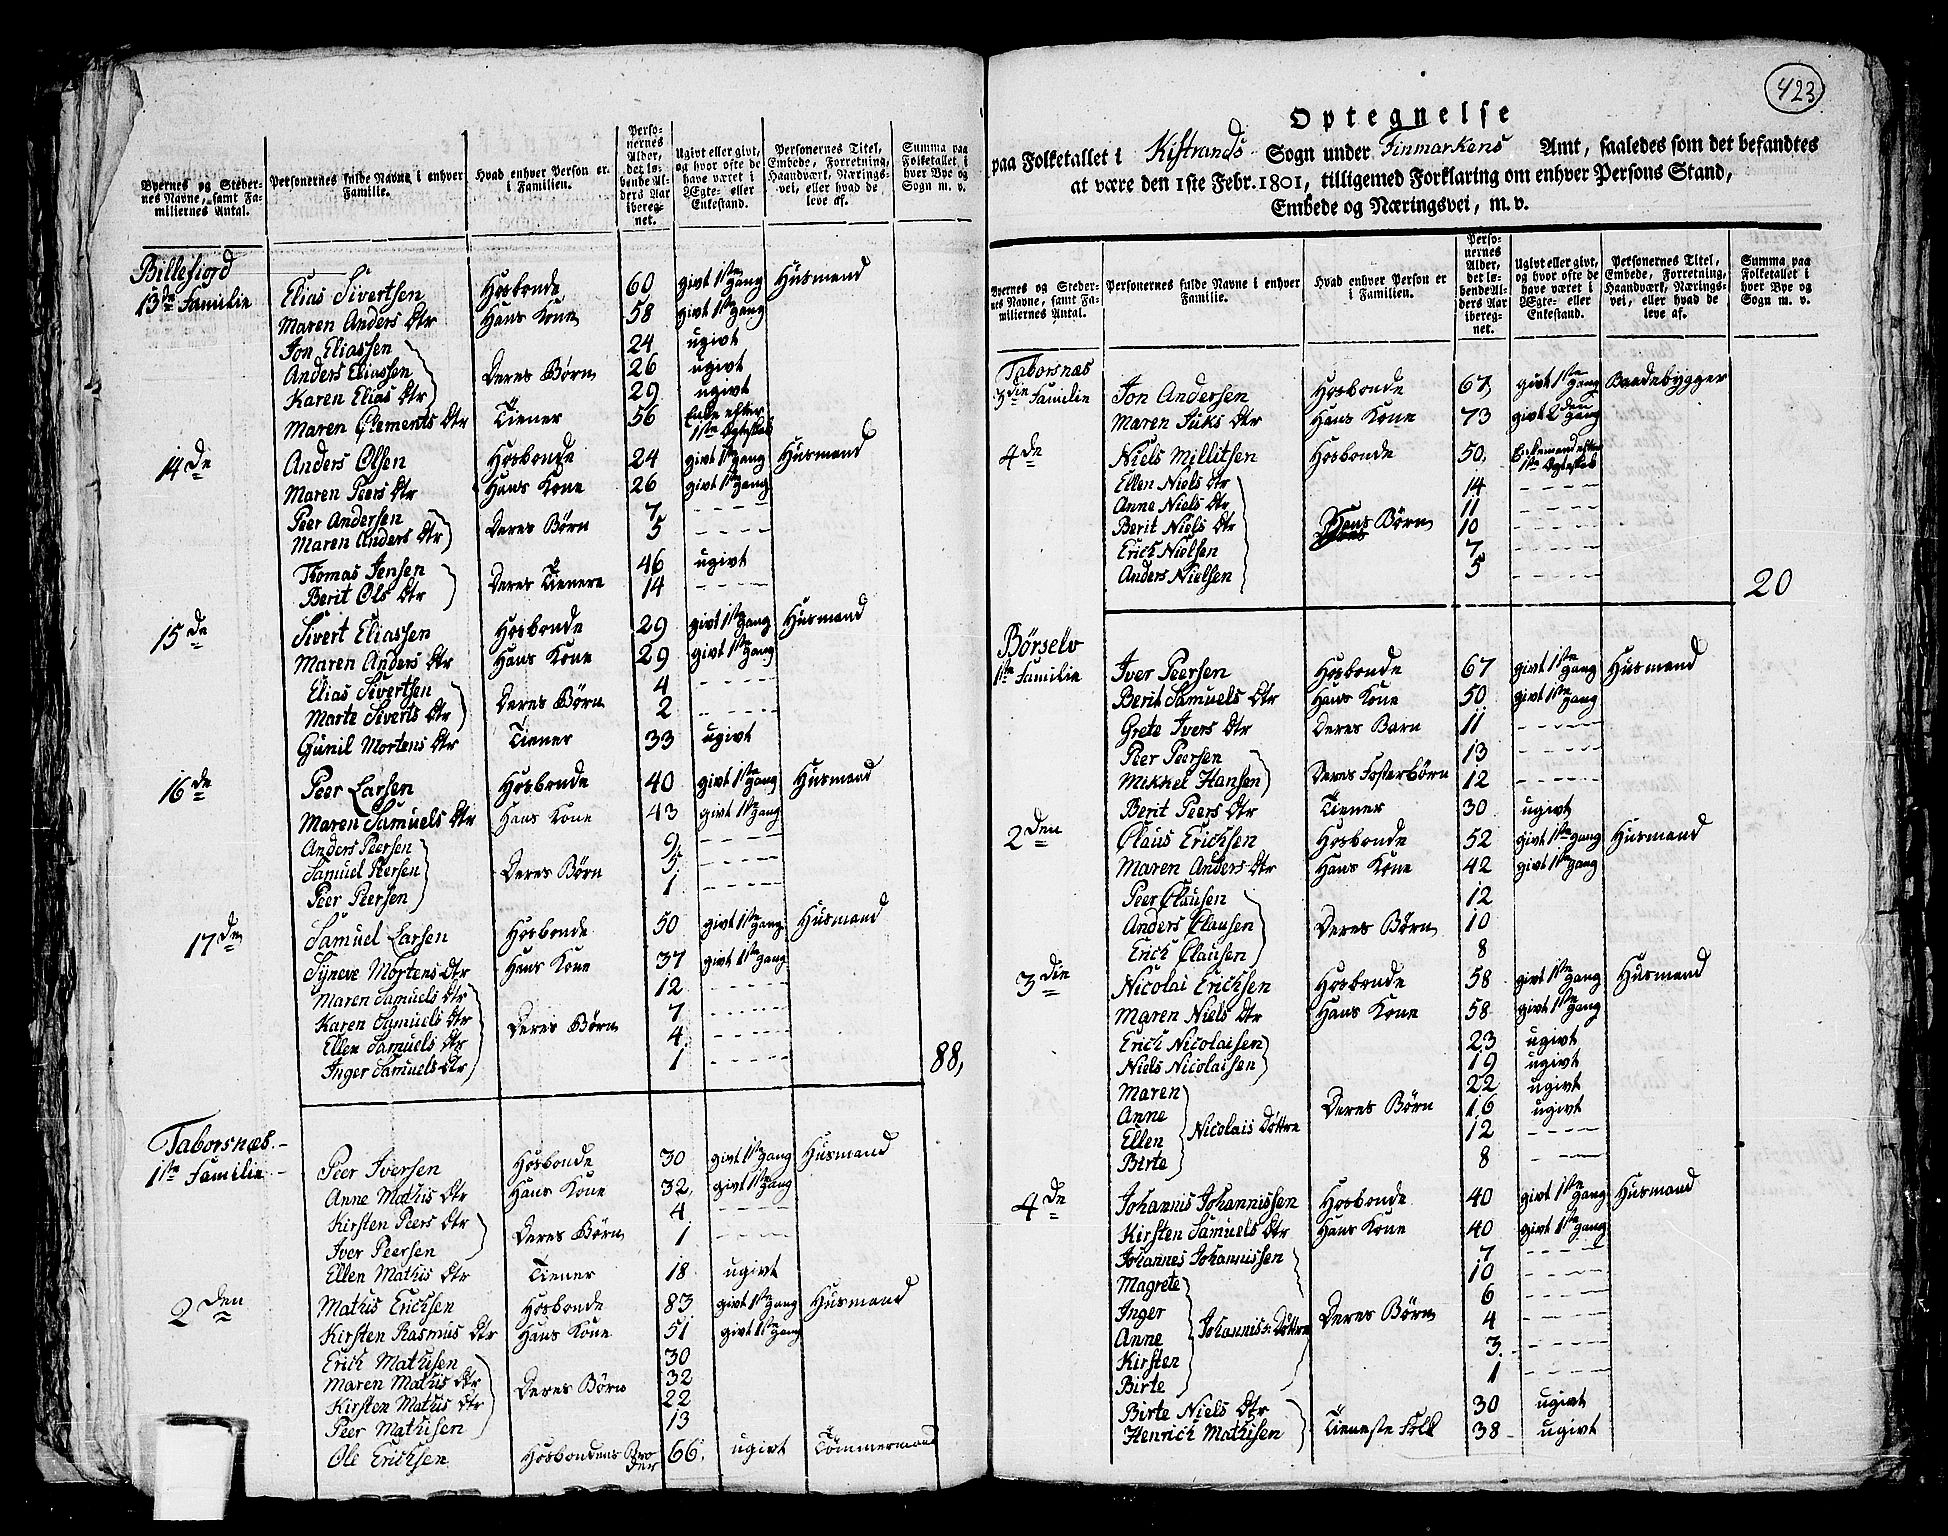 Byernes og Steder-
nes Navne, samt Fa-
miliernes Antal.
Personernes fulde Navne i enhver
Familie.
Hvad enhver Person er
i Familien.
Perso-
nernes
Alder,
det lø-
bende Al-
ders Aar
ibereg-
net.
Ugivt eller givt,
og hvor ofte de
have været i
Ægte- eller
Enkestand.
Personernes Titel,
Embede, Forretning,
Haandværk, Nærings-
vei, eller hvad de
leve af.
Summa paa
Folketallet i
hver Bye og
Sogn m. v.
Billefiord
13de Familie Elias Sivertsen Hosbonde 60 givt 1ste gang Husmand
Maren Anders Dtr Hans Kone 58 givt 1ste gang
Jon Eliassen 24 ugivt
Anders Eliassen Deres Børn 26 ugivt
Karen Elias Dtr 29 ugivt
Maren Clements Dtr Tiener 56 Enke efter 1ste Ægteskab
14de Anders Olsen Hosbonde 24 givt 1ste gang Husmand
Maren Peers Dtr Hans Kone 26 givt 1ste gang
Peer Andersen 7
Maren Anders Dtr Deres Børn 5
Thomas Jensen 46 ugivt
Berit Ols Dtr Deres Tienere 14
15de Sivert Eliassen Hosbonde 29 givt 1ste gang Husmand
Maren Anders Dtr Hans Kone 29 givt 1ste gang
Elias Sivertsen 4
Marte Siverts Dtr Deres Børn 2
Gunil Mortens Dtr Tiener 33 ugivt
16de Peer Larsen Hosbonde 40 givt 1ste gang Husmand
Maren Samuels Dtr Hans Kone 43 givt 1ste gang
Anders Peersen 9
Samuel Peersen Deres Børn 5
Peer Peersen 1
17de Samuel Larsen Hosbonde 50 givt 1ste gang Husmand
Syneve Mortens Dtr Hans Kone 37 givt 1ste gang
Maren Samuels Dtr 12
Karen Samuels Dtr Deres Børn 7
Ellen Samuels Dtr 4
Inger Samuels Dtr 1 88,
Taborsnæs
1ste Familie Peer Iversen Hosbonde 30 givt 1ste gang Husmand
Anne Mathis Dtr Hans Kone 32 givt 1ste gang
Kirsten Peers Dtr 4
Iver Peersen Deres Børn 1
Ellen Mathis Dtr Tiener 18 ugivt
2den Mathis Erichsen Hosbonde 83 givt 1ste gang Husmand
Kirsten Rasmus Dtr Hans Kone 51 givt 1ste gang
Erich Mathisen 30
Maren Mathis Dtr Deres Børn 32
Kirsten Mathis Dtr 22
Peer Mathisen 13
Ole Erichsen Hosbondens Broder 66 ugivt Tømmermand
423
Optegnelse
paa Folketallet i Kistrands Sogn under Finmarkens Amt, saaledes som det befandtes
at være den 1ste Febr. 1801, tilligemed Forklaring om enhver Persons Stand,
Embede og Næringsvei, m. v.
Byernes og Steder-
nes Navne, samt Fa-
miliernes Antal.
Personernes fulde Navne i enhver
Familie.
Hvad enhver Person er
i Familien.
Perso-
nernes
Alder,
det lø-
bende Al-
ders Aar
ibereg-
net.
Ugivt eller givt,
og hvor ofte de
have været i
Ægte- eller
Enkestand.
Personernes Titel,
Embede, Forretning,
Haandværk, Nærings-
vei, eller hvad de
leve af.
Summa paa
Folketallet i
hver Bye og
Sogn m. v.
Taborsnæs
3die Familie Jon Andersen Hosbonde 67 givt 1ste gang Baadebygger
Maren Juks Dtr Hans Kone 73 givt 2den gang
4de Niels Millitsen Hosbonde 50 Enkemand efter 1ste Ægteskab
Ellen Niels Dtr 14
Anne Niels Dtr 11
Berit Niels Dtr Hans Børn 10
Erich Nielsen 7
Anders Nielsen 5
20
Børselv
1ste Familie Iver Peersen Hosbonde 67 givt 1ste gang Husmand
Berit Samuels Dtr Hans Kone 50 givt 1ste gang
Grete Ivers Dtr Deres Barn 11
Peer Peersen 13
Mikkel Hansen Deres Fosterbørn 12
Berit Peers Dtr Tiener 30 ugivt
2den Claus Erichsen Hosbonde 52 givt 1ste gang Husmand
Maren Anders Dtr Hans Kone 42 givt 1ste gang
Peer Clausen 12
Anders Clausen Deres Børn 10
Erich Clausen 8
3die Nicolai Erichsen Hosbonde 58 givt 1ste gang Husmand
Maren Niels Dtr Hans Kone 58 givt 1ste gang
Erich Nicolaisen 23 ugivt
Niels Nicolaisen 19 ugivt
Maren 22 ugivt
Anne Deres Børn 16 ugivt
Ellen Nicolais Døttre 12
Birte 8
4de Johannis Johannissen Hosbonde 40 givt 1ste gang Husmand
Kirsten Samuels Dtr Hans Kone 40 givt 1ste gang
Johannes Johannissen 7
Magrete 10
Inger Deres Børn 6
Anne Johannis: Døttre 4
Kirsten 3
Birte 1
Birte Niels Dtr 30 ugivt
Henrich Mathisen Tieneste Folk 38 ugivt